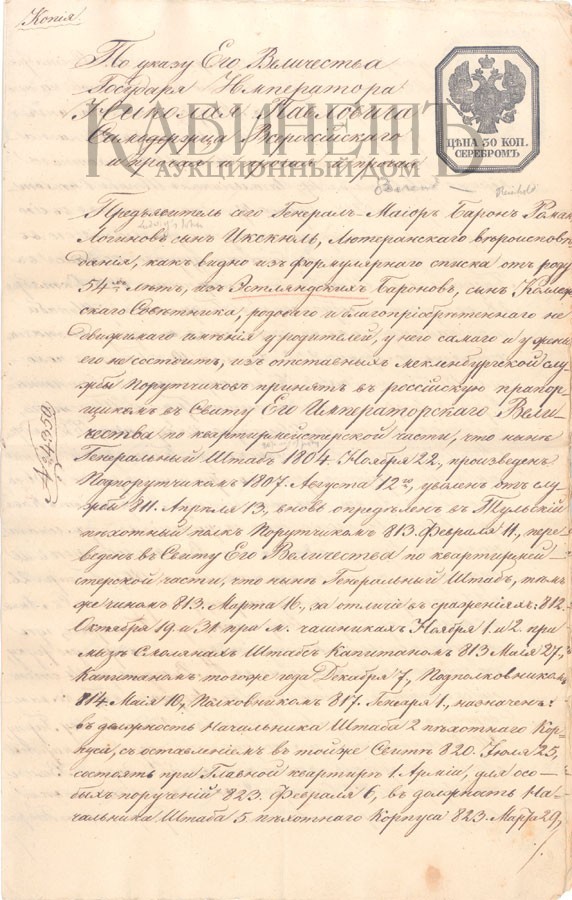 Копія.
По указу Его Величества
Государя Императора
Николая Павловича
Самодержца Всероссійскаго
и прочая и прочая и прочая
КАБИНЕТЪ
АУКЦИОННЫЙ ДОМ
ЦѢНА 30 КОП.
СЕРЕБРОМЪ
Berend
Reinhold
Предъявитель сего Генералъ-Маіоръ Баронъ Романъ
Логиновъ сынъ Икскюль, Лютеранскаго вѣроисповѣ
данія, какъ видно изъ формулярнаго списка отъ роду
54хъ лѣтъ, изъ Эстляндскихъ Бароновъ, сынъ Коллеж
скаго Совѣтника, родоваго и благопріобрѣтеннаго не
движимаго имѣнія у родителей, у него самаго и у жены
его не состоитъ, изъ отставныхъ мекленбургской слу
жбы Порутчиковъ принятъ въ россійскую прапор
щикомъ въ Свиту Его Императорскаго Вели
чества по квартирмейстерской части, что нынѣ
Генеральный Штабъ 1804. Ноября 22, произведенъ
Подпорутчикомъ 1807. Августа 12го, уволенъ отъ слу
жбы 811. Апрѣля 13, вновь опредѣленъ въ Тульскій
пѣхотный полкъ Порутчикомъ 813. Февраля 11, пере
веденъ въ Свиту Его Величества по квартирмей
стерской части, что нынѣ Генеральный Штабъ, тѣмъ
же чиномъ 813. Марта 16, за отличіе въ сраженіяхъ: 812.
Октября 19 и 31 при м. Чашникахъ Ноября 1. и 2. при
мызѣ Смолянахъ Штабсъ Капитаномъ 813 Маія 27,
Капитаномъ того же года Декабря 7, Подполковникомъ
814. Маія 10, Полковникомъ 817. Генваря 1, назначенъ:
въ должность Начальника Штаба 2 пѣхотнаго Кор
пуса, съ оставленіемъ въ той же Свитѣ 820. Іюля 25,
состоять при Главной квартирѣ 1. Арміи, для осо
быхъ порученій 823. Февраля 6, въ должность На
чальника Штаба 5 пѣхотнаго Корпуса 823. Марта 29,
№ 4350